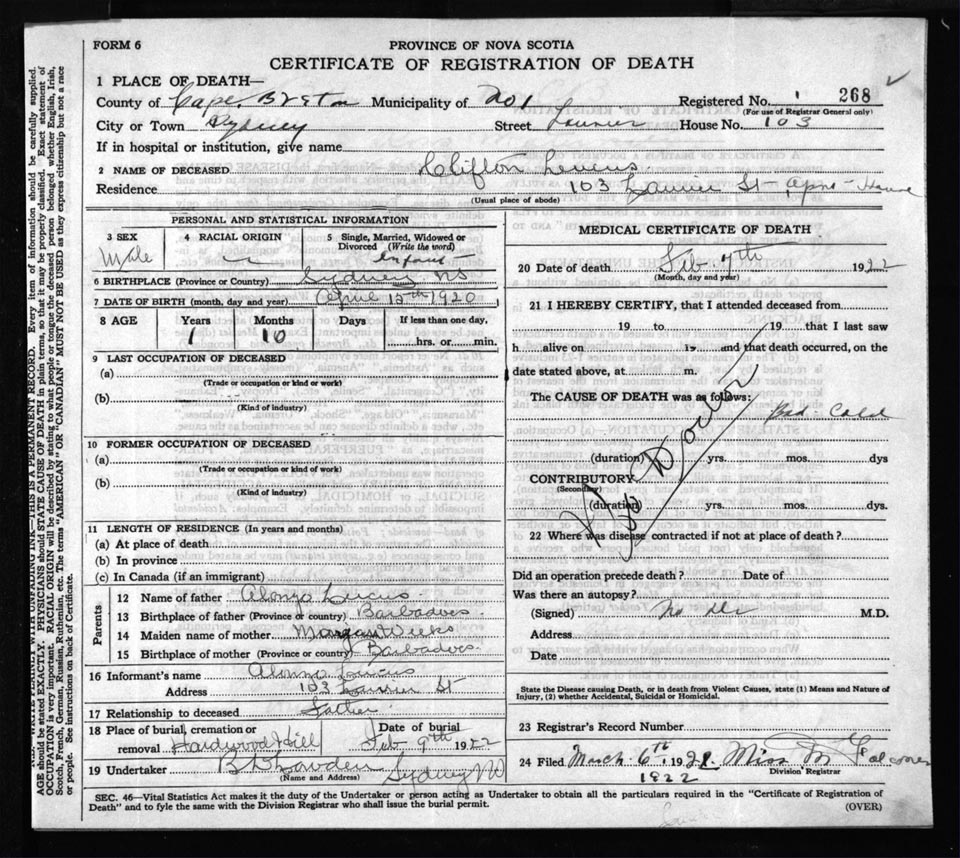 FORM 6
PROVINCE OF NOVA SCOTIA
CERTIFICATE OF REGISTRATION OF DEATH
1 PLACE OF DEATH—
County of Cape Breton Municipality of 201 Registered No. 268
(For use of Registrar General only)
City or Town Sydney Street Laurier House No. 103
If in hospital or institution, give name
2 NAME OF DECEASED Clifton Lucus
Residence 103 Laurier St
(Usual place of abode)
PERSONAL AND STATISTICAL INFORMATION
3 SEX Male
4 RACIAL ORIGIN
5 Single, Married, Widowed or Divorced (Write the word) Infant
6 BIRTHPLACE (Province or Country) Sydney NS
7 DATE OF BIRTH (month, day and year) 15th 1920
8 AGE Years 1 Months 10 Days If less than one day, hrs. or min.
9 LAST OCCUPATION OF DECEASED
(a)
(Trade or occupation or kind of work)
(b)
(Kind of industry)
10 FORMER OCCUPATION OF DECEASED
(a)
(Trade or occupation or kind of work)
(b)
(Kind of industry)
11 LENGTH OF RESIDENCE (In years and months)
(a) At place of death
(b) In province
(c) In Canada (if an immigrant)
Parents
12 Name of father Alonzo Lucus
13 Birthplace of father (Province or country) Barbadoes
14 Maiden name of mother Weeks
15 Birthplace of mother (Province or country) Barbadoes
16 Informant's name Alonzo Lucus
Address 103 Laurier St
17 Relationship to deceased Father
18 Place of burial, cremation or removal Hardwood Hill Date of burial Feb 9th 1922
19 Undertaker Sydney
(Name and Address)
MEDICAL CERTIFICATE OF DEATH
20 Date of death Feb 7th 1922
(Month, day and year)
21 I HEREBY CERTIFY, that I attended deceased from
19 to 19 that I last saw
h alive on 19 and that death occurred, on the
date stated above, at m.
The CAUSE OF DEATH was as follows:
Bad Cold
No Doctor
(duration) yrs. mos. dys
CONTRIBUTORY
(Secondary)
(duration) yrs. mos. dys
22 Where was disease contracted if not at place of death?
Did an operation precede death? Date of
Was there an autopsy?
(Signed) No Dr M.D.
Address
Date
State the Disease causing Death, or in death from Violent Causes, state (1) Means and Nature of
Injury, (2) whether Accidental, Suicidal or Homicidal.
23 Registrar's Record Number
24 Filed March 6th 1922 Miss M
Division Registrar
SEC. 46—Vital Statistics Act makes it the duty of the Undertaker or person acting as Undertaker to obtain all the particulars required in the "Certificate of Registration of
Death" and to fyle the same with the Division Registrar who shall issue the burial permit.
(OVER)
WRITE PLAINLY WITH UNFADING INK—THIS IS A PERMANENT RECORD. Every item of information should be carefully supplied.
AGE should be stated EXACTLY. PHYSICIANS should STATE CAUSE OF DEATH in plain terms, so that it may be properly classified. Exact statement of
OCCUPATION is very important. RACIAL ORIGIN will be described by stating to what people or tongue the deceased person belonged whether English, Irish,
Scotch, French, German, Russian, Ruthenian, etc. The terms "AMERICAN" OR "CANADIAN" MUST NOT BE USED as they express citizenship but not a race
or people. See instructions on back of Certificate.